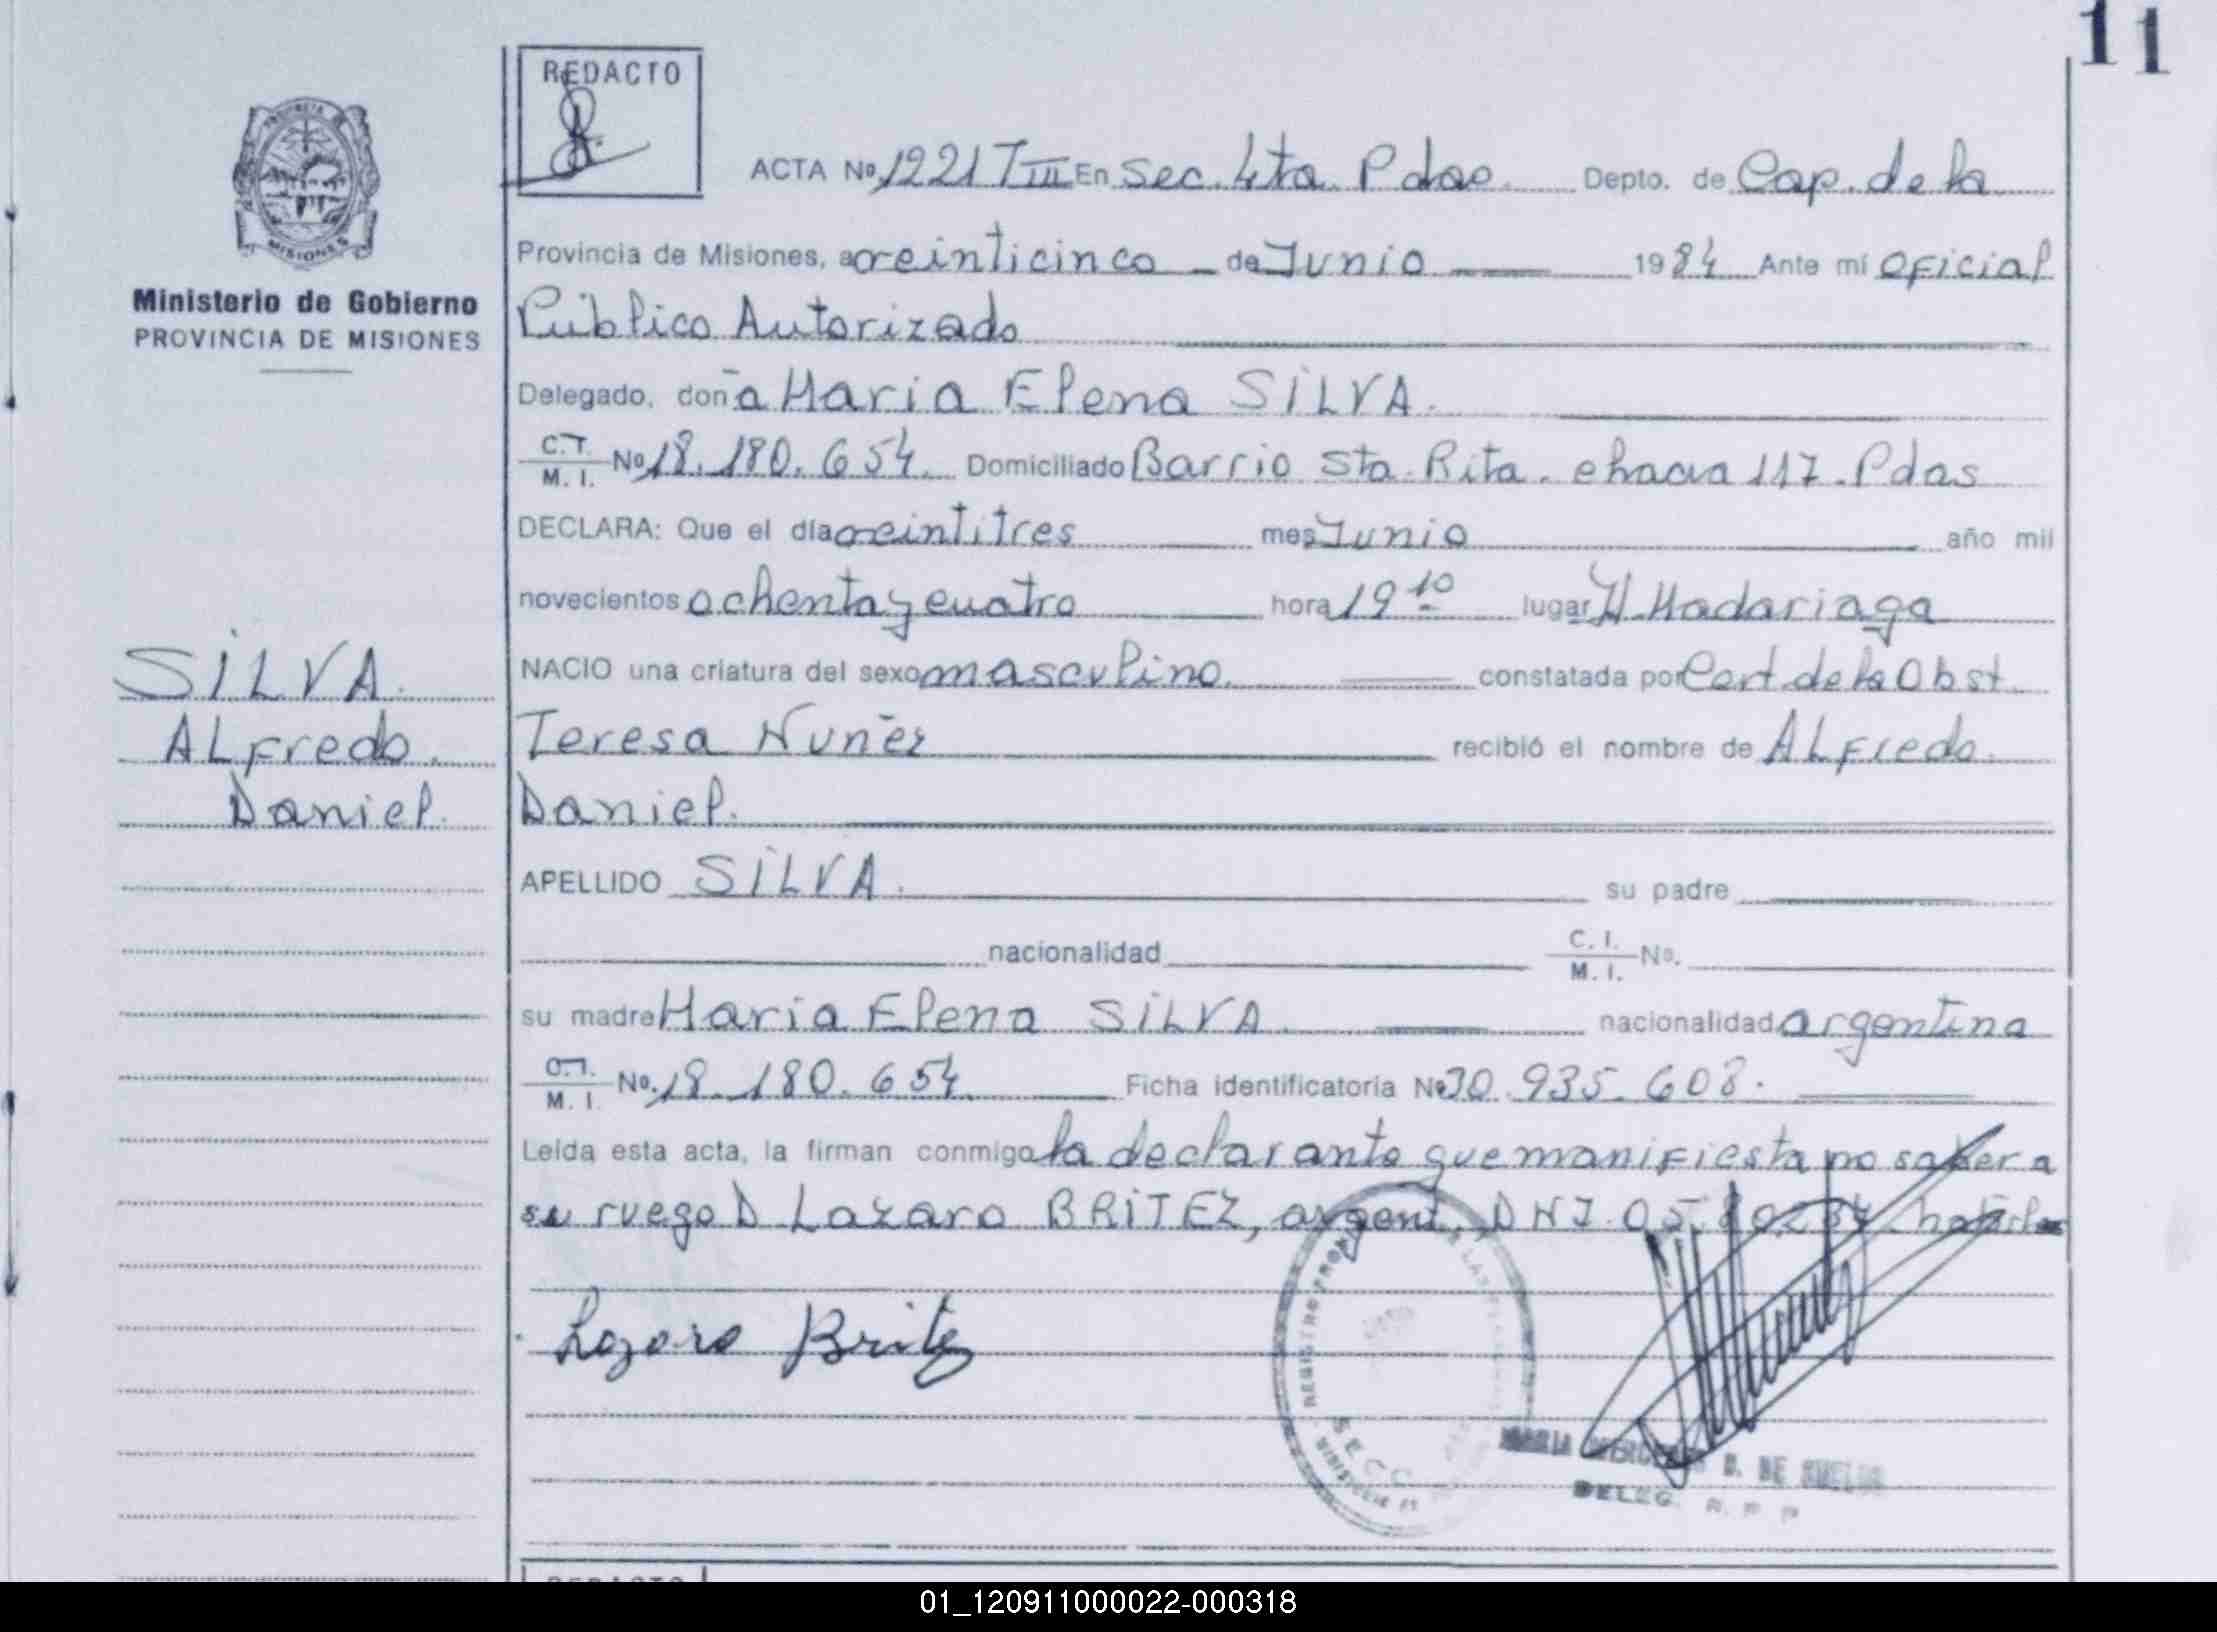 11
REDACTO
ACTA Nº 1221 T III En Sec. 4ta. Pdas. Depto. de Cap. de la
Provincia de Misiones, a veinticinco de Junio 1984 Ante mí Oficial
Ministerio de Gobierno
PROVINCIA DE MISIONES
Público Autorizado
Delegado, doña Maria Elena SILVA.
C.I. M. I. Nº 18.180.654. Domiciliado Barrio Sta. Rita. chacra 117. Pdas
DECLARA: Que el día veintitres mes Junio año mil
novecientos ochenta y cuatro hora 19 10 lugar H. Madariaga
NACIO una criatura del sexo masculino. constatada por Cert. de la Obst.
Teresa Nuñez recibió el nombre de ALFredo.
Daniel.
SILVA.
ALFredo.
Daniel.
APELLIDO SILVA. su padre
nacionalidad C. I. M. I. Nº.
su madre Maria Elena SILVA. nacionalidad argentina
C.I. M. I. Nº. 18.180.654. Ficha identificatoria Nº 30.935.608.
Leída esta acta, la firman conmigo la declarante que manifiesta no saber a
su ruego D. Lazaro BRITEZ, argent. DNI
Lazaro Britez
REGISTRO
SECC.
MARIA MERCEDES D. DE
DELEG. R. P. P
REDACTO
01_120911000022-000318